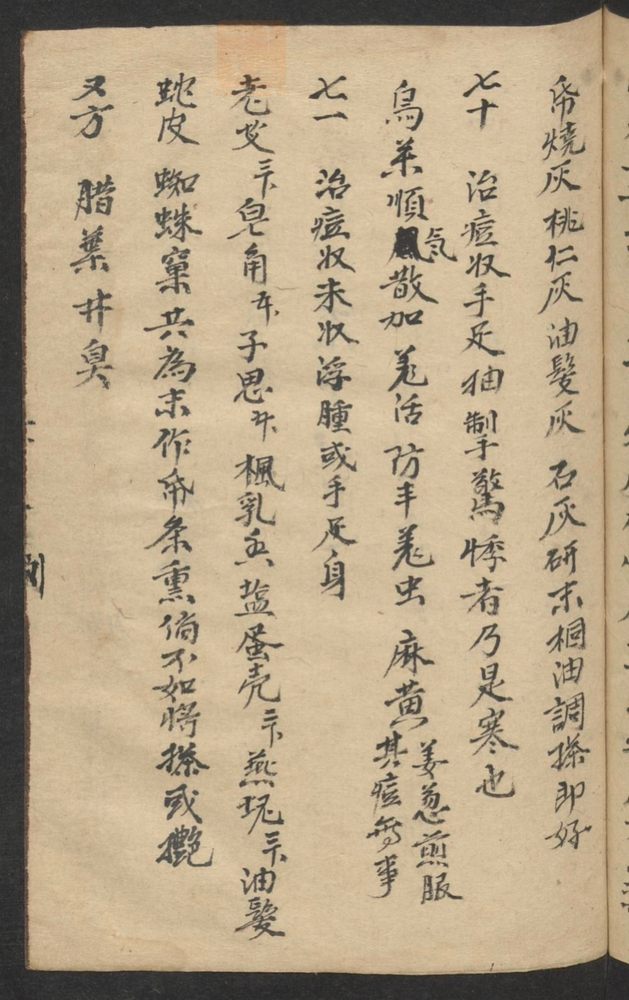 帋燒灰桃仁灰油髮灰 石灰研末桐油調搽即好
七十 治痘收手足抽掣驚悸者乃是寒也
烏茱順氣散加羌活防丰羌虫 麻黃 姜葱煎服 其痘無事
七一 治痘收未收浮腫或手足身
老艾三卞皂角 子思 楓乳香盐蛋壳三卞燕坭三卞油髮
蛇皮 蜘蛛窠共為末作帋条熏倘不如將搽或
又方 腊葉井臭